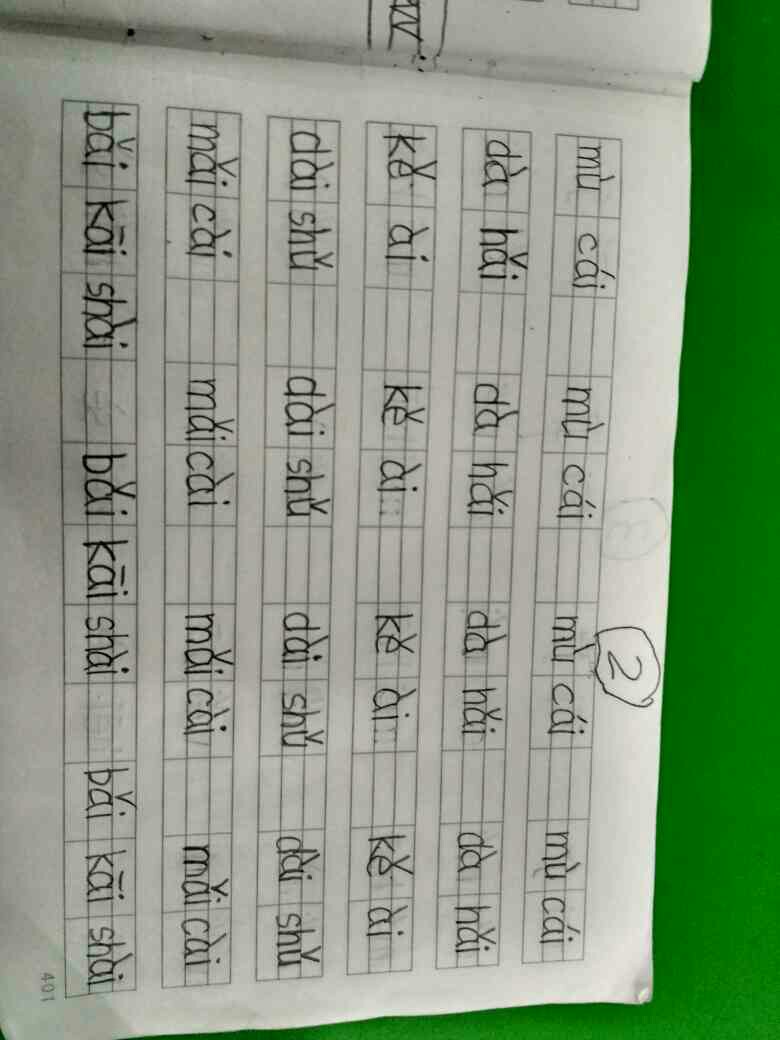 2
mù cái mù cái mù cái mù cái
dà hǎi dà hǎi dà hǎi dà hǎi
kě ài kě ài kě ài kě ài
dài shǔ dài shǔ dài shǔ dài shǔ
mǎi cài mǎi cài mǎi cài mǎi cài
bǎi kāi shài bǎi kāi shài bǎi kāi shài
401